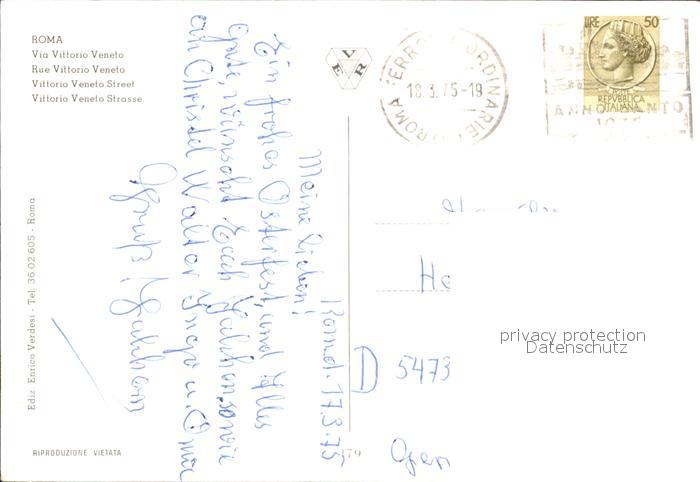 ROMA
Via Vittorio Veneto
Rue Vittorio Veneto
Vittorio Veneto Street
Vittorio Veneto Strasse
VER
ROMA FERROVIA ORDINARIE
18.3.75-19
LIRE 50
POSTE
REPVBBLICA
ITALIANA
ANNO SANTO
1975
Romd. 17.3.75
Meine Lieben!
Ein frohes Osterfest, und Alles
gute, wünscht Euch sowie
an Christel Walter Ingo u. Oma
Gruß!
He
D 5473
privacy protection
Datenschutz
Ediz. Enrico Verdesi - Tel. 36 02 605 - Roma
RIPRODUZIONE VIETATA